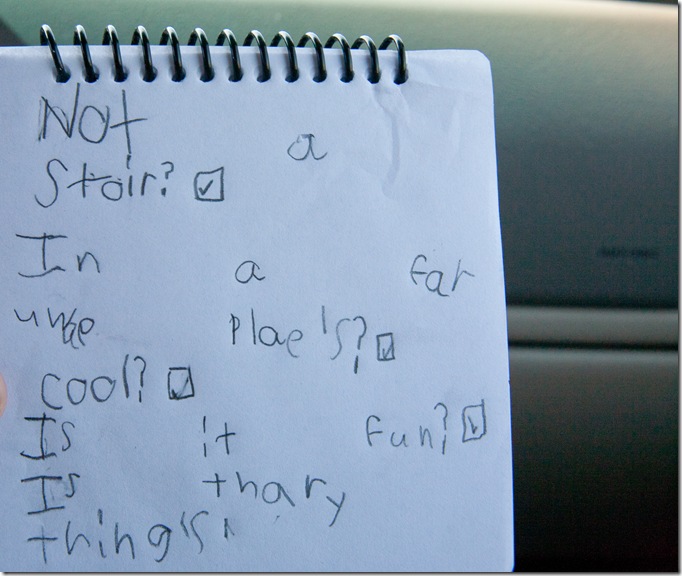 Not a
Stair? ☑
In a far
Plae's? ☑
cool? ☑
Is it fun? ☑
Is thary
thing's'